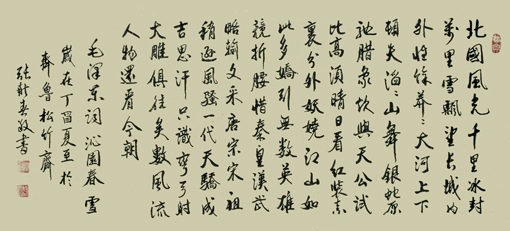 北國風光千里冰封
萬里雪飄望長城內
外惟餘莽〻大河上下
頓失滔〻山舞銀蛇原
馳臘象欲與天公試
比高須晴日看紅裝素
裹分外妖嬈江山如
此多嬌引無數英雄
競折腰惜秦皇漢武
略輸文采唐宗宋祖
稍遜風騷一代天驕成
吉思汗只識彎弓射
大雕俱往矣數風流
人物還看今朝
毛澤東詞沁園春雪
歲在丁酉夏至於
齊魯松竹齋
張
書